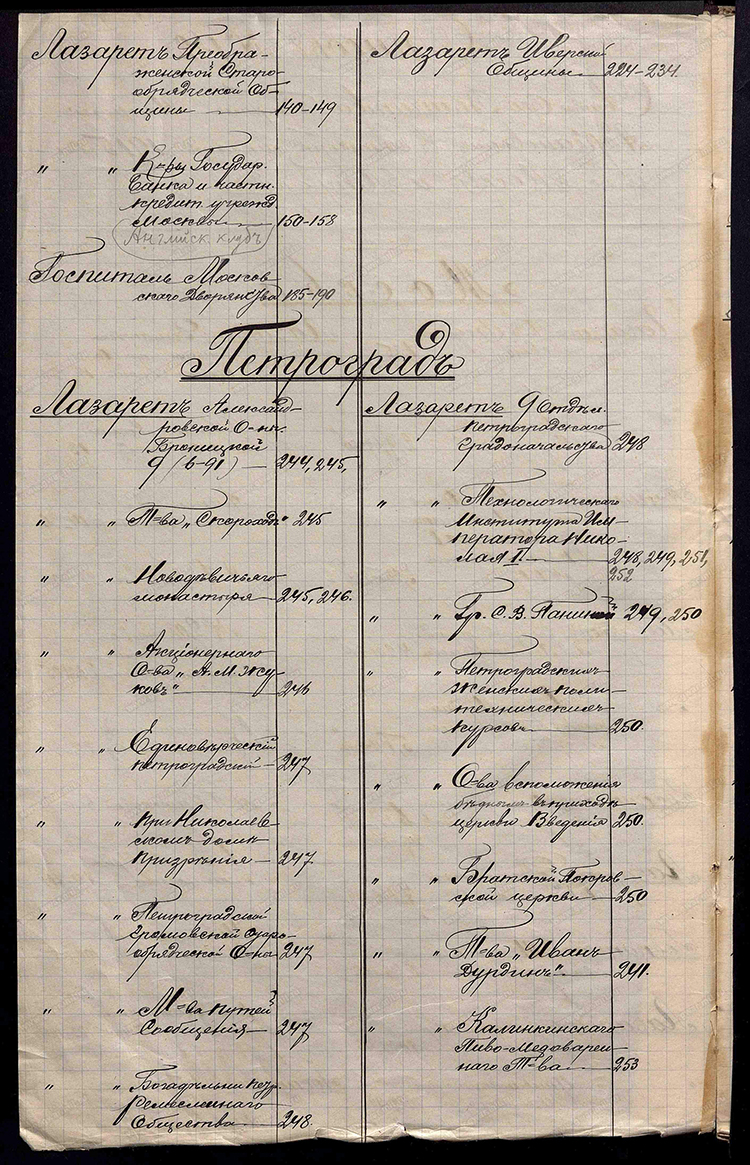 Лазаретъ Преобра-
женской Старо-
обрядческой Об-
щины — 140-149
" " К-ры Государ.
Банка и частн.
кредит. учрежд.
Москвы — 150-158
(Англійск. клубъ)
Госпиталь Москов
скаго Дворянства 185-190
Лазаретъ Иверской
Общины — 224-234.
Петроградъ
Лазаретъ Александ-
ровской О-ны
Броницкой
9 (6-91) — 244, 245,
" " Т-ва „Скороходъ" 245
" " Новодѣвичьяго
монастыря — 245, 246.
" " Акціонернаго
О-ва „А. М. Жу-
ковъ" — 246
" " Единовѣрческій
петроградскій — 247
" " При Николаев
скомъ домѣ
призрѣнія — 247
" " Петроградской
громовской старо-
обрядческой О-ны 247
" " М-ва путей
Сообщенія — 247
" " Богадѣльни петр.
Ремесленнаго
Общества — 248.
Лазаретъ 9 Отдѣл.
Петроградскаго
градоначальства 248
" " Технологическаго
Института Им-
ператора Нико-
лая I. — 248, 249, 251,
252
" " Гр. С. В. Паниной 249, 250
" " Петроградскихъ
женскихъ поли-
техническихъ
курсовъ — 250.
" " О-ва вспоможенія
бѣднымъ въ приходѣ
церкви Введенія 250.
" " Братской Покров-
ской церкви — 250
" " Т-ва „Иванъ
Дурдинъ" — 241.
" " Калинкинскаго
Пиво-Медоварен-
наго Т-ва — 253